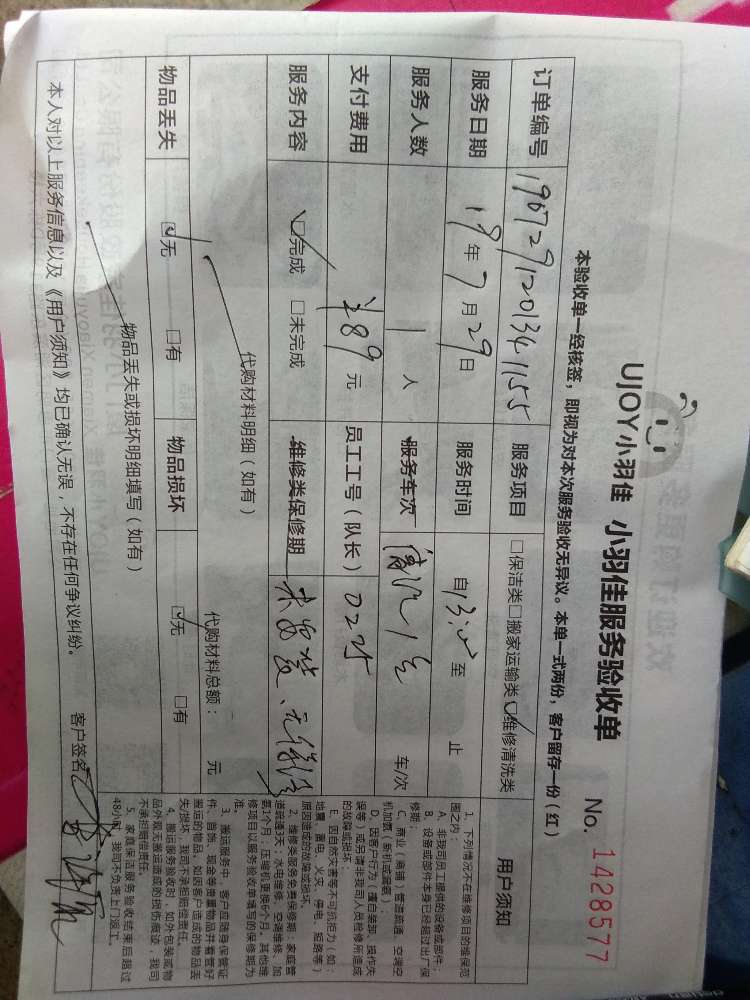 UJOY小羽佳 小羽佳服务验收单
No. 1428577
本验收单一经核签，即视为对本次服务验收无异议。本单一式两份，客户留存一份（红）
订单编号 190729120134 1155 服务项目 □保洁类□搬家运输类☑维修清洗类
服务日期 19年7月29日 服务时间 自13:00至 止
服务人数 1 人 服务车次 车/次
支付费用 ¥89 元 员工工号（队长） 0225
服务内容 ☑完成 □未完成 维修类保修期
代购材料明细（如有）
代购材料总额： 元
物品丢失 ☑无 □有 物品损坏 ☑无 □有
物品丢失或损坏明细填写（如有）
本人对以上服务信息以及《用户须知》均已确认无误，不存在任何争议纠纷。 客户签名
用户须知
1、下列情况不在维修项目的维保范
围之内：
A、非我司员工提供的设备或部件；
B、设备或部件本身已经超过出厂保
修期；
C、商业（商铺）管道疏通、空调空
机加氟（新机或漏氟）；
D、因客户行为（擅自装卸、操作失
误等）或另请非我司人员检修所造成
的故障或损坏；
E、因自然灾害等不可抗拒力（如：
地震、雷电、火灾、停电、短路等）
原因造成的故障或损坏。
2、维修类服务免费保修期：家庭管
道疏通3天；水电维修、空调维修、加
氨1个月；压缩机更换6个月。其他维
修项目以服务验收单填写的保修期为
准。
3、搬运服务中，客户应随身保管证
件、首饰、现金等贵重物品并看管好
搬运的物品，如因客户造成的物品丢
失/损坏，我司不承担赔偿责任。
4、搬运服务验收时，如外包装或物
品外观无搬运造成的损伤痕迹，我司
不承担赔偿责任。
5、家庭保洁服务验收结束后超过
48小时，我司不负责上门返工。